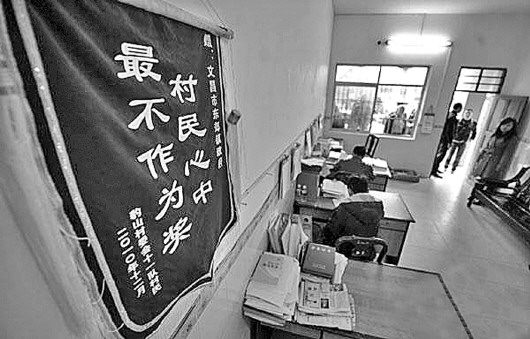 赠:文昌市东郊镇政府
村民心中
最不作为奖
豹山村委会十一队村民
二〇一〇年十二月